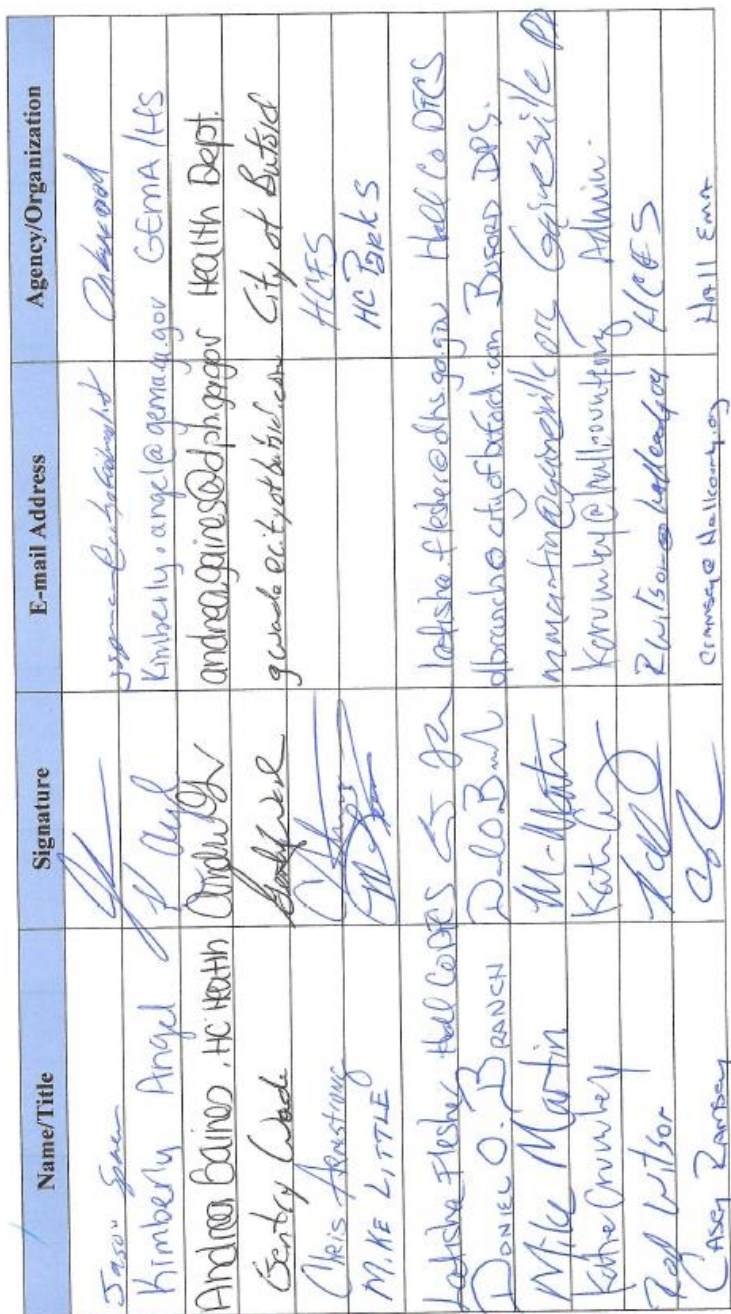 Name/Title Signature E-mail Address Agency/Organization
Jason Oakwood
Kimberly Angel kimberly.angel@gema.ga.gov GEMA/HS
Andrea Gaines, HC Health andrea.gaines@dph.ga.gov Health Dept.
Gentry Wade gwade@cityofbuford.com City of Buford
Chris Armstrong HCFS
MIKE LITTLE HC Parks
Latisha Flesher Hall Co DFCS latisha.flesher@dhs.ga.gov Hall Co DFCS
DANIEL O. BRANCH dbranch@cityofbuford.com BUFORD DPS.
Mike Martin mmartin@gainesville.org Gainesville PD
Katie Crumley kcrumley@hallcounty.org Admin.
Rod Wilson HCFS
CASEY RAMSEY cramsey@hallcounty.org Hall EMA